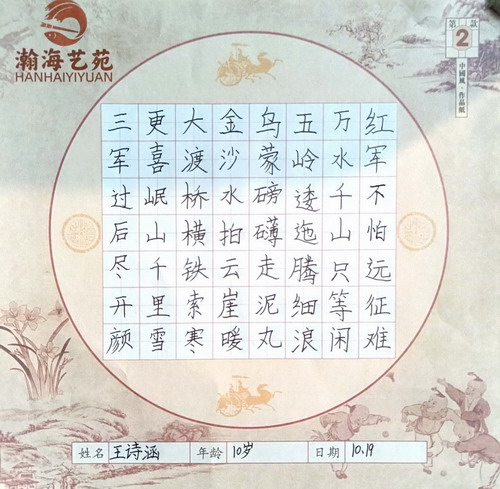 瀚海艺苑
HANHAIYIYUAN
2
中國風 作品紙
红军不怕远征难
万水千山只等闲
五岭逶迤腾细浪
乌蒙磅礴走泥丸
金沙水拍云崖暖
大渡桥横铁索寒
更喜岷山千里雪
三军过后尽开颜
姓名 王诗涵 年龄 10岁 日期 10.19